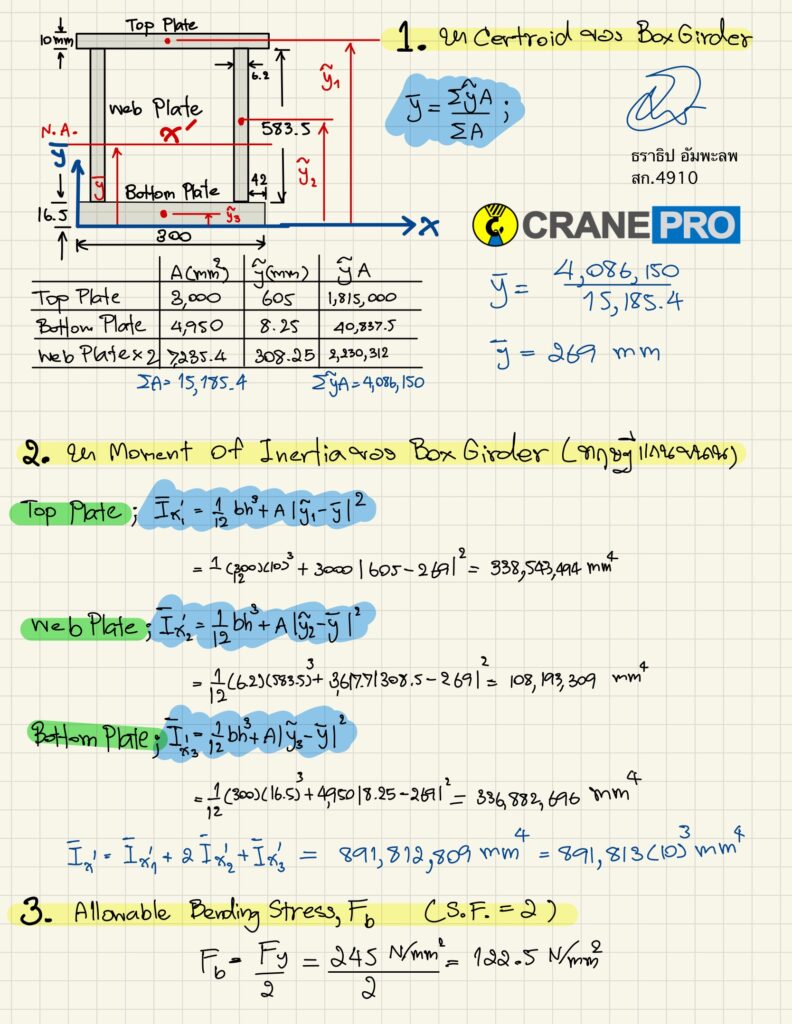 Top Plate
10mm
6.2
ỹ₁
Web Plate
N.A.
x'
583.5
y
ȳ
ỹ₂
Bottom Plate
42
16.5
ỹ₃
x
300
1. หา Centroid ของ Box Girder
ȳ = ΣỹA / ΣA ;
ธราธิป อัมพะลพ
สก.4910
CRANE PRO
A(mm²) ỹ(mm) ỹA
Top Plate 3,000 605 1,815,000
Bottom Plate 4,950 8.25 40,837.5
Web Plate×2 7,235.4 308.25 2,230,312
ΣA = 15,185.4 ΣỹA = 4,086,150
ȳ = 4,086,150 / 15,185.4
ȳ = 269 mm
2. หา Moment Of Inertia ของ Box Girder (ทฤษฎีแกนขนาน)
Top Plate ; Īx'₁ = 1/12 bh³ + A|ỹ₁ - ȳ|²
= 1/12 (300)(10)³ + 3000|605 - 269|² = 338,543,494 mm⁴
Web Plate ; Īx'₂ = 1/12 bh³ + A|ỹ₂ - ȳ|²
= 1/12 (6.2)(583.5)³ + 3,617.7|308.5 - 269|² = 108,193,309 mm⁴
Bottom Plate ; Īx'₃ = 1/12 bh³ + A|ỹ₃ - ȳ|²
= 1/12 (300)(16.5)³ + 4,950|8.25 - 269|² = 336,882,696 mm⁴
Īx' = Īx'₁ + 2 Īx'₂ + Īx'₃ = 891,812,809 mm⁴ = 891,813(10)³ mm⁴
3. Allowable Bending Stress, Fb (S.F. = 2)
Fb = Fy / 2 = 245 N/mm² / 2 = 122.5 N/mm²